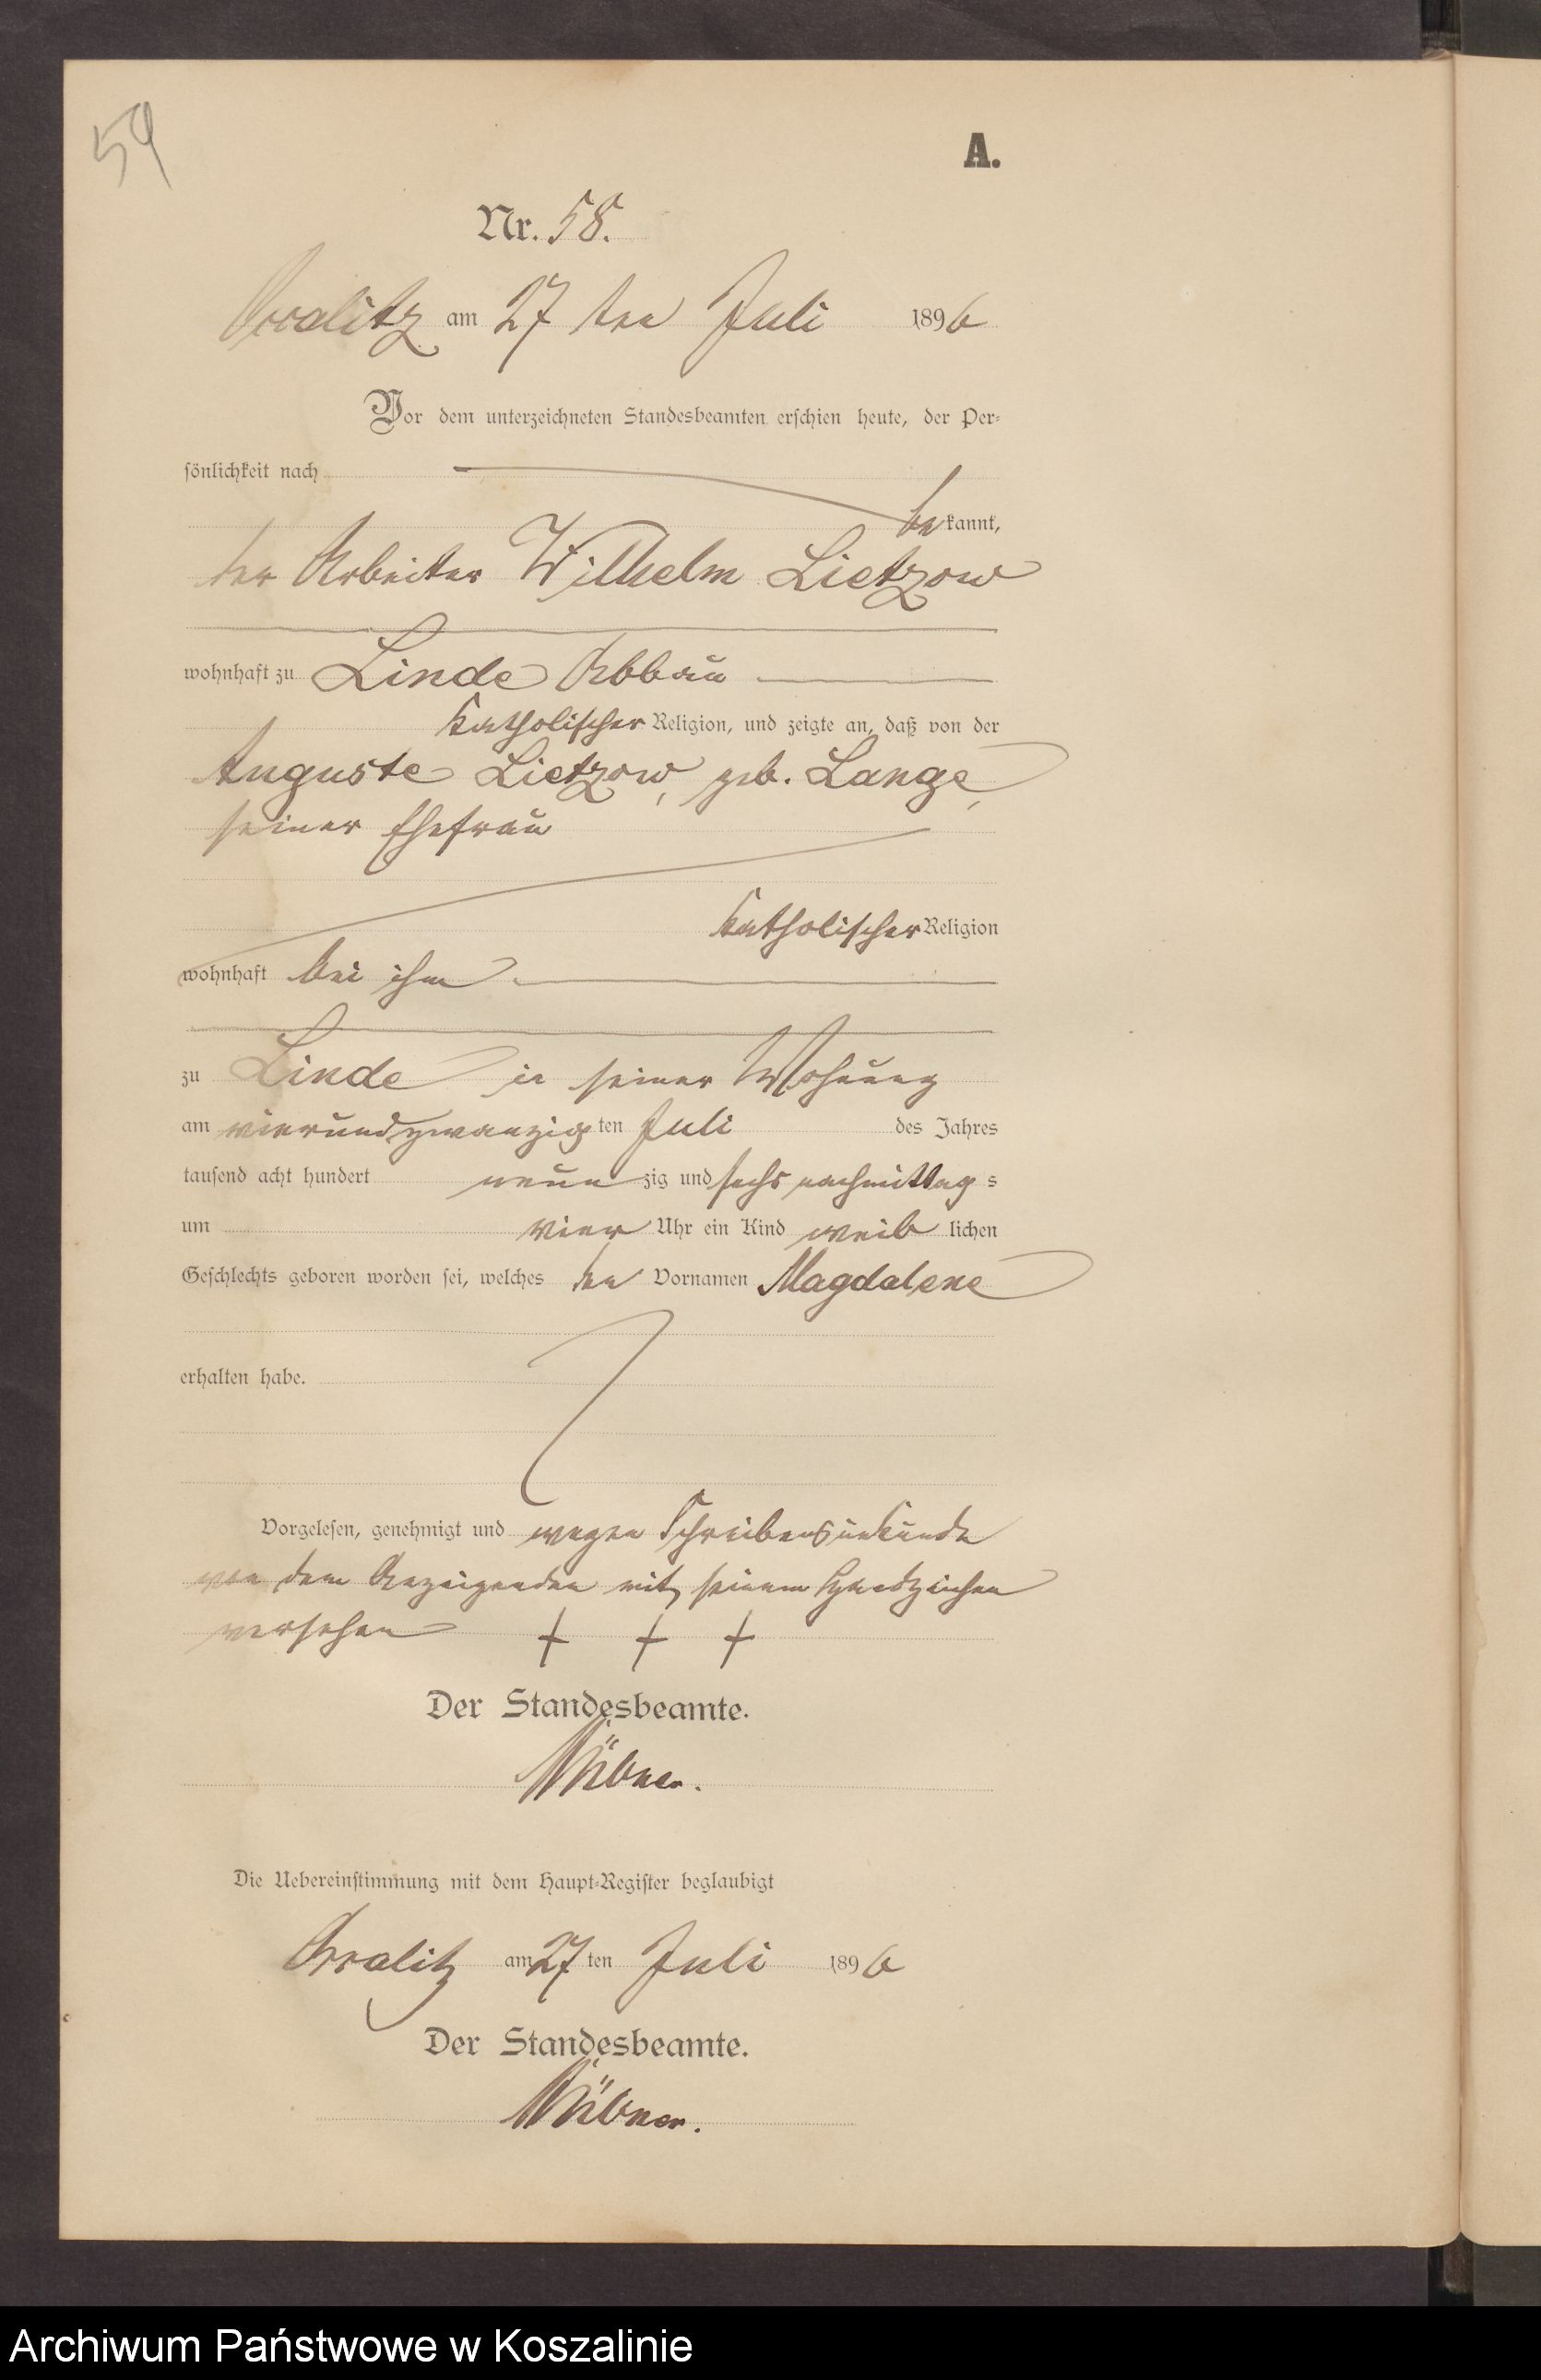 59
A.
Nr. 58.
am 27 ten Juli 1896
Vor dem unterzeichneten Standesbeamten erschien heute, der Per-
sönlichkeit nach
bekannt,
der Arbeiter Wilhelm Lietzow
wohnhaft zu Linde Abbau
katholischer Religion, und zeigte an, daß von der
Auguste Lietzow, geb. Lange,
seiner Ehefrau
katholischer Religion
wohnhaft bei ihm
zu Linde in seiner Wohnung
am vierundzwanzigten Juli des Jahres
tausend acht hundert neunzig und sechs nachmittags
um vier Uhr ein Kind weiblichen
Geschlechts geboren worden sei, welches den Vornamen Magdalene
erhalten habe.
Vorgelesen, genehmigt und wegen Schreibensunkunde
von dem Anzeigenden mit seinem Handzeichen
versehen + + +
Der Standesbeamte.
Die Uebereinstimmung mit dem Haupt-Register beglaubigt
am 27 ten Juli 1896
Der Standesbeamte.
Archiwum Państwowe w Koszalinie